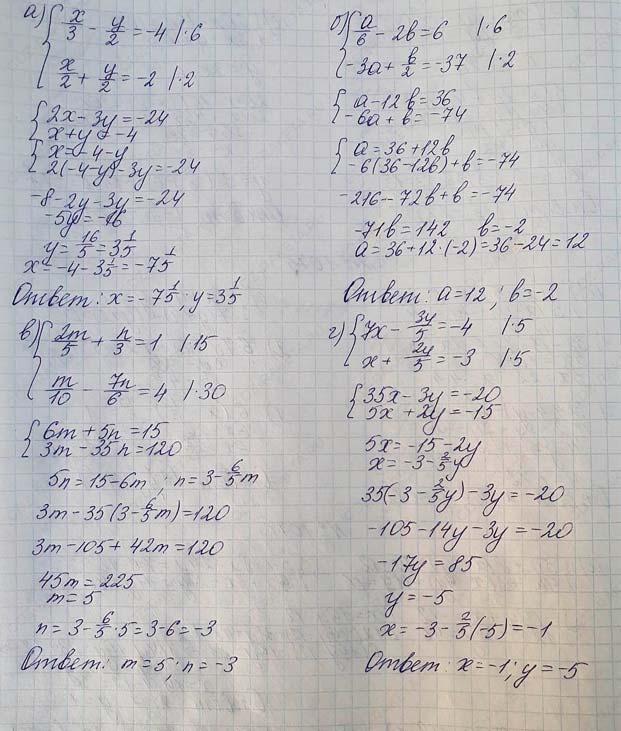 а) { x/3 - y/2 = -4 | ·6
x/2 + y/2 = -2 | ·2
{ 2x - 3y = -24
x + y = -4
{ x = -4 - y
2(-4 - y) - 3y = -24
-8 - 2y - 3y = -24
-5y = -16
y = 16/5 = 3 1/5
x = -4 - 3 1/5 = -7 1/5
Ответ: x = -7 1/5; y = 3 1/5
б) { a/6 - 2b = 6 | ·6
-3a + b/2 = -37 | ·2
{ a - 12b = 36
-6a + b = -74
{ a = 36 + 12b
-6(36 - 12b) + b = -74
-216 - 72b + b = -74
-71b = 142 b = -2
a = 36 + 12·(-2) = 36 - 24 = 12
Ответ: a = 12; b = -2
в) { 2m/5 + n/3 = 1 | ·15
m/10 - 7n/6 = 4 | ·30
{ 6m + 5n = 15
3m - 35n = 120
5n = 15 - 6m; n = 3 - 6/5 m
3m - 35(3 - 6/5 m) = 120
3m - 105 + 42m = 120
45m = 225
m = 5
n = 3 - 6/5 · 5 = 3 - 6 = -3
Ответ: m = 5; n = -3
г) { 7x - 3y/5 = -4 | ·5
x + 2y/5 = -3 | ·5
{ 35x - 3y = -20
5x + 2y = -15
5x = -15 - 2y
x = -3 - 2/5 y
35(-3 - 2/5 y) - 3y = -20
-105 - 14y - 3y = -20
-17y = 85
y = -5
x = -3 - 2/5 (-5) = -1
Ответ: x = -1; y = -5